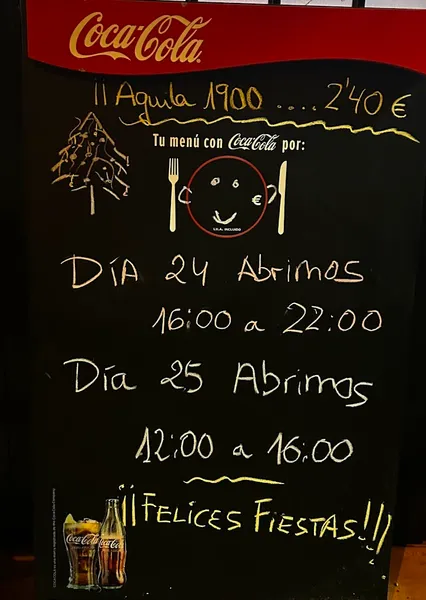 Coca-Cola
¡¡Aguila 1900 .... 2'40 €
Tu menú con Coca-Cola por:
€
I.V.A. INCLUIDO
DÍA 24 Abrimos
16:00 a 22:00
Día 25 Abrimos
12:00 a 16:00
¡¡¡FELICES FIESTAS!!!
Coca-Cola Coca-Cola